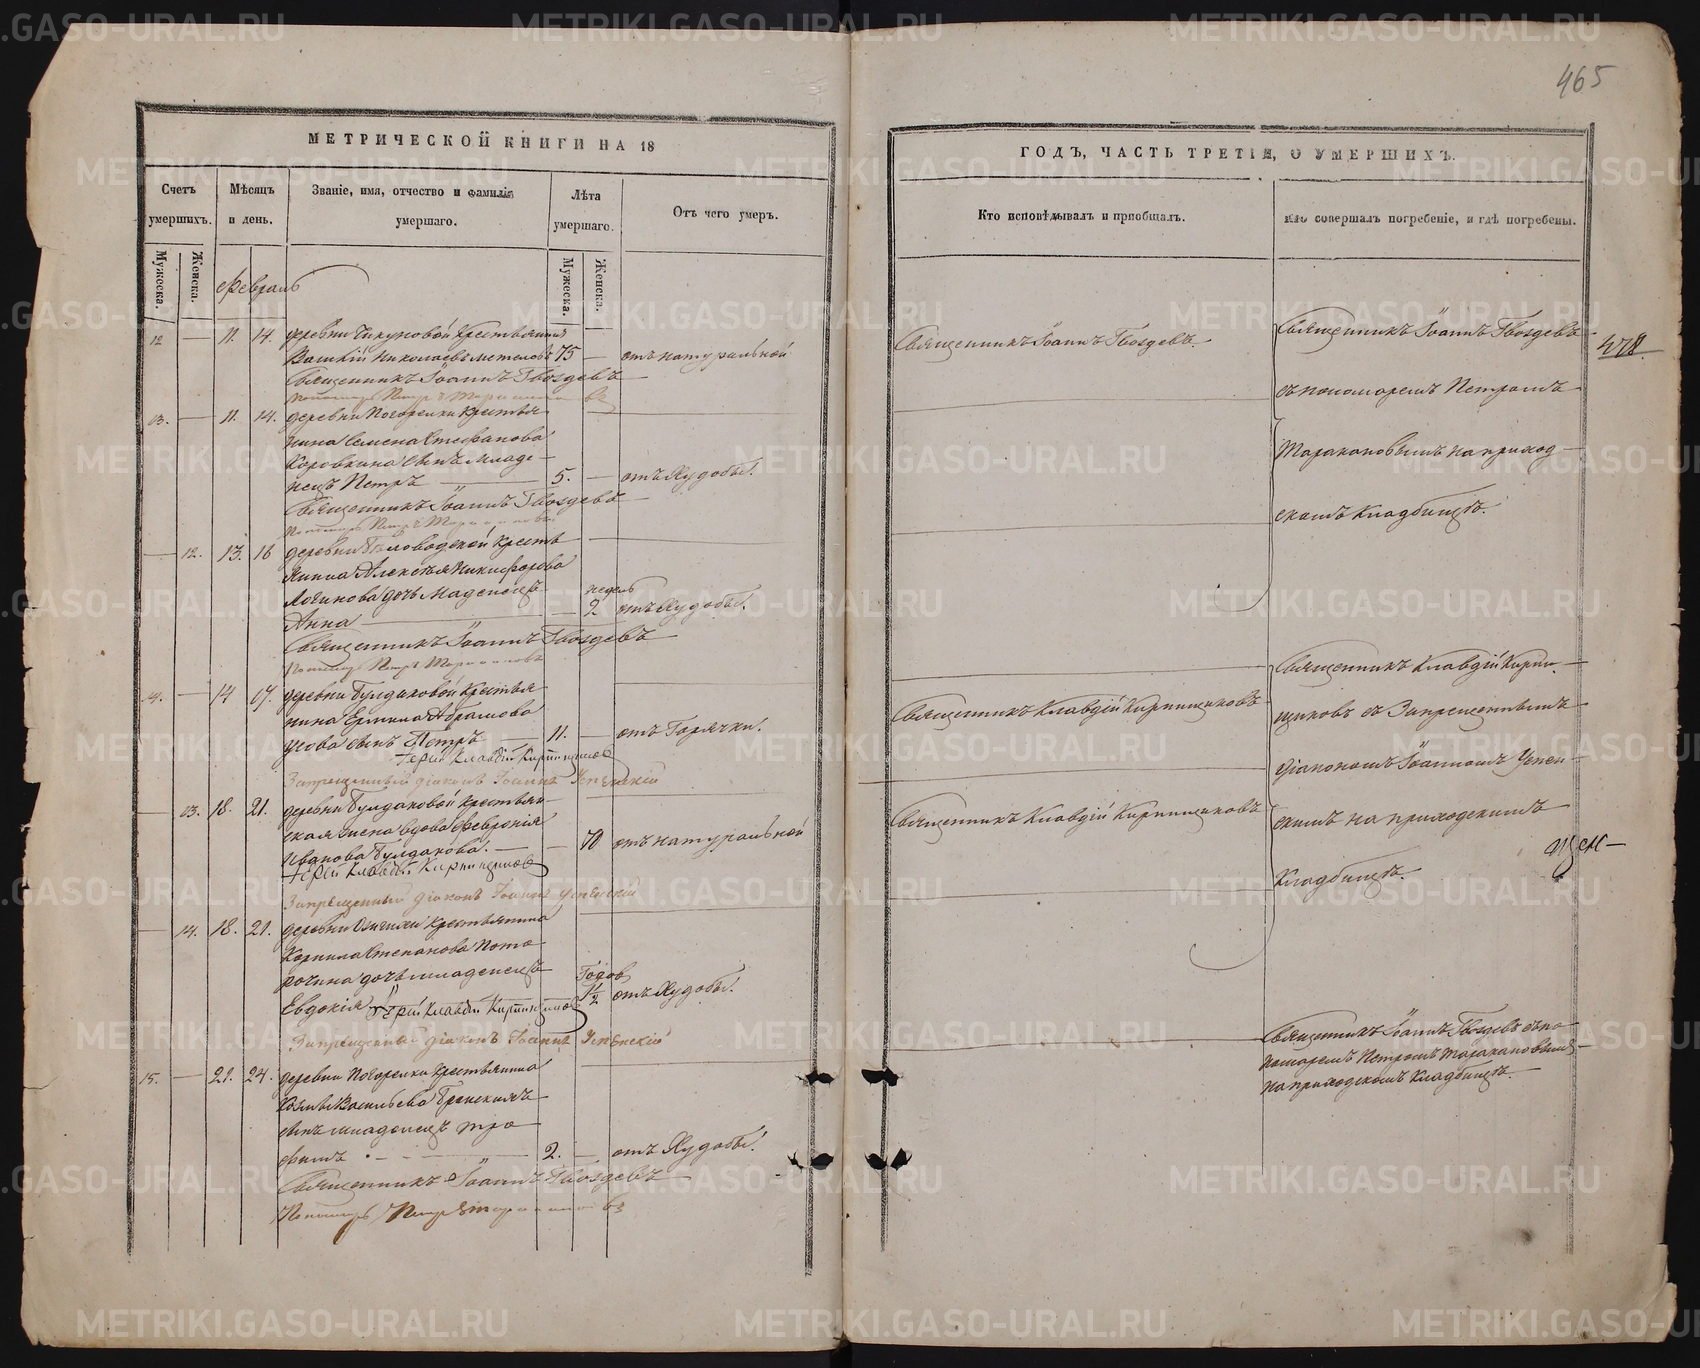 465
МЕТРИЧЕСКОЙ КНИГИ НА 18
Счетъ умершихъ.
Мѣсяцъ и день.
Званіе, имя, отчество и фамилія умершаго.
Лѣта умершаго.
Отъ чего умеръ.
Мужеска.
Женска.
Мужеска.
Женска.
Февраль
12 — 11. 14. деревни Чикуновой Крестьянинъ
Василій Николаевъ 75 — отъ натуральной
Священникъ Іоаннъ Гвоздевъ
13. — 11. 14. деревни Погорелки Крестья-
нина Семена Стефанова
Коровкина сынъ Младе-
нецъ Петръ — 5. — отъ Худобы.
Священникъ Іоаннъ Гвоздевъ
— 12. 13. 16 деревни Крестья
янина Алексѣя Никифорова
Логинова дочь Младенецъ недель
Анна — 2 отъ Худобы.
Священникъ Іоаннъ Гвоздевъ
14. — 14 17. деревни Булдаковой Крестья
нина Абрамова
сынъ Петръ — 11. — отъ Горячки.
Іерей Клавдій Кирпищиковъ
Запрещенный діаконъ Іоаннъ Успенскій
— 13. 18. 21. деревни Булдаковой крестьян-
ская жена вдова Феврония
Иванова Булдакова. — 70 отъ натуральной
Іерей Клавдій Кирпищиковъ
Запрещенный діаконъ Іоаннъ Успенскій
— 14. 18. 21. деревни крестьянина
Корнила Степанова Пото
рочина дочь младенецъ Годов
Евдокія 1/2 отъ Худобы.
Іерей Клавдій Кирпищиковъ
Запрещенный діаконъ Іоаннъ Успенскій
15. — 21. 24. деревни Погорелки крестьянина
Козмы Васильева
сынъ младенецъ Тро
фимъ — 2. — отъ Худобы.
Священникъ Іоаннъ Гвоздевъ
ГОДЪ, ЧАСТЬ ТРЕТІЯ, О УМЕРШИХЪ.
Кто исповѣдывалъ и пріобщалъ.
Кто совершалъ погребеніе, и гдѣ погребены.
Священникъ Іоаннъ Гвоздевъ.
Священникъ Іоаннъ Гвоздевъ
съ пономаремъ Петромъ
Таракановымъ на приход-
скомъ Кладбищѣ.
Священникъ Клавдій Кирпищиковъ
Священникъ Клавдій Кирпи-
щиковъ съ Запрещеннымъ
діакономъ Іоанномъ Успен-
Священникъ Клавдій Кирпищиковъ
скимъ на приходскимъ
Кладбищѣ.
Священникъ Іоаннъ Гвоздевъ съ по-
номаремъ Петромъ Таракановымъ
на приходскомъ Кладбищѣ.
METRIKI.GASO-URAL.RU